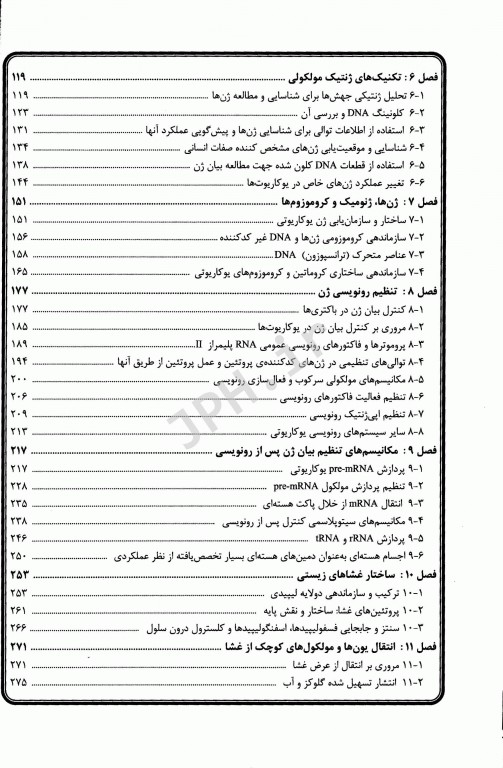 فصل ۶: تکنیک‌های ژنتیک مولکولی ........ ۱۱۹
۶-۱ تحلیل ژنتیکی جهش‌ها برای شناسایی و مطالعه ژن‌ها ........ ۱۱۹
۶-۲ کلونینگ DNA و بررسی آن ........ ۱۲۳
۶-۳ استفاده از اطلاعات توالی برای شناسایی ژن‌ها و پیش‌گویی عملکرد آنها ........ ۱۳۱
۶-۴ شناسایی و موقعیت‌یابی ژن‌های مشخص کننده صفات انسانی ........ ۱۳۴
۶-۵ استفاده از قطعات DNA کلون شده جهت مطالعه بیان ژن ........ ۱۳۸
۶-۶ تغییر عملکرد ژن‌های خاص در یوکاریوت‌ها ........ ۱۴۴
فصل ۷: ژن‌ها، ژنومیک و کروموزوم‌ها ........ ۱۵۱
۷-۱ ساختار و سازمان‌یابی ژن یوکاریوتی ........ ۱۵۱
۷-۲ سازماندهی کروموزومی ژن‌ها و DNA غیر کدکننده ........ ۱۵۶
۷-۳ عناصر متحرک (ترانسپوزون) DNA ........ ۱۵۸
۷-۴ سازماندهی ساختاری کروماتین و کروموزوم‌های یوکاریوتی ........ ۱۶۵
فصل ۸: تنظیم رونویسی ژن ........ ۱۷۷
۸-۱ کنترل بیان ژن در باکتری‌ها ........ ۱۷۷
۸-۲ مروری بر کنترل بیان ژن در یوکاریوت‌ها ........ ۱۸۵
۸-۳ پروموترها و فاکتورهای رونویسی عمومی RNA پلیمراز II ........ ۱۸۹
۸-۴ توالی‌های تنظیمی در ژن‌های کدکننده‌ی پروتئین و عمل پروتئین از طریق آنها ........ ۱۹۴
۸-۵ مکانیسم‌های مولکولی سرکوب و فعال‌سازی رونویسی ........ ۲۰۰
۸-۶ تنظیم فعالیت فاکتورهای رونویسی ........ ۲۰۶
۸-۷ تنظیم اپی‌ژنتیک رونویسی ........ ۲۰۹
۸-۸ سایر سیستم‌های رونویسی یوکاریوتی ........ ۲۱۳
فصل ۹: مکانیسم‌های تنظیم بیان ژن پس از رونویسی ........ ۲۱۷
۹-۱ پردازش pre-mRNA یوکاریوتی ........ ۲۱۷
۹-۲ تنظیم پردازش مولکول pre-mRNA ........ ۲۲۸
۹-۳ انتقال mRNA از خلال پاکت هسته‌ای ........ ۲۳۵
۹-۴ مکانیسم‌های سیتوپلاسمی کنترل پس از رونویسی ........ ۲۳۸
۹-۵ پردازش rRNA و tRNA ........ ۲۴۶
۹-۶ اجسام هسته‌ای به‌عنوان دمین‌های هسته‌ای بسیار تخصص‌یافته از نظر عملکردی ........ ۲۵۰
فصل ۱۰: ساختار غشاهای زیستی ........ ۲۵۳
۱۰-۱ ترکیب و سازماندهی دولایه لیپیدی ........ ۲۵۳
۱۰-۲ پروتئین‌های غشا: ساختار و نقش پایه ........ ۲۶۱
۱۰-۳ سنتز و جابجایی فسفولیپیدها، اسفنگولیپیدها و کلسترول درون سلول ........ ۲۶۶
فصل ۱۱: انتقال یون‌ها و مولکول‌های کوچک از غشا ........ ۲۷۱
۱۱-۱ مروری بر انتقال از عرض غشا ........ ۲۷۱
۱۱-۲ انتشار تسهیل شده گلوکز و آب ........ ۲۷۵
JPH.ir